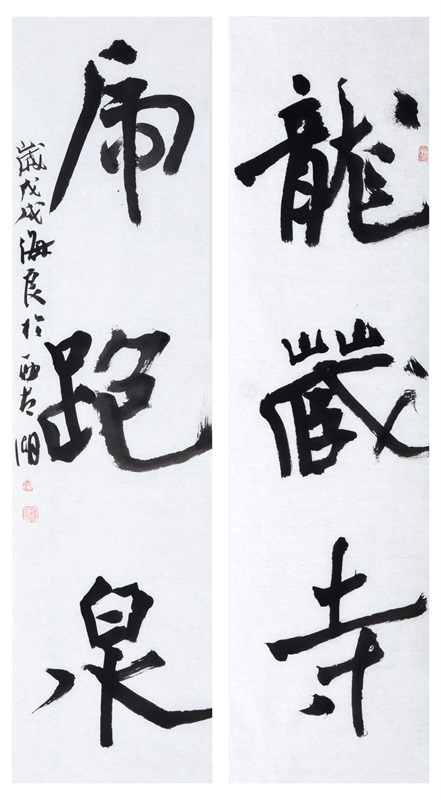 龍藏寺
虎跑泉
歲戊戌海良於西太湖